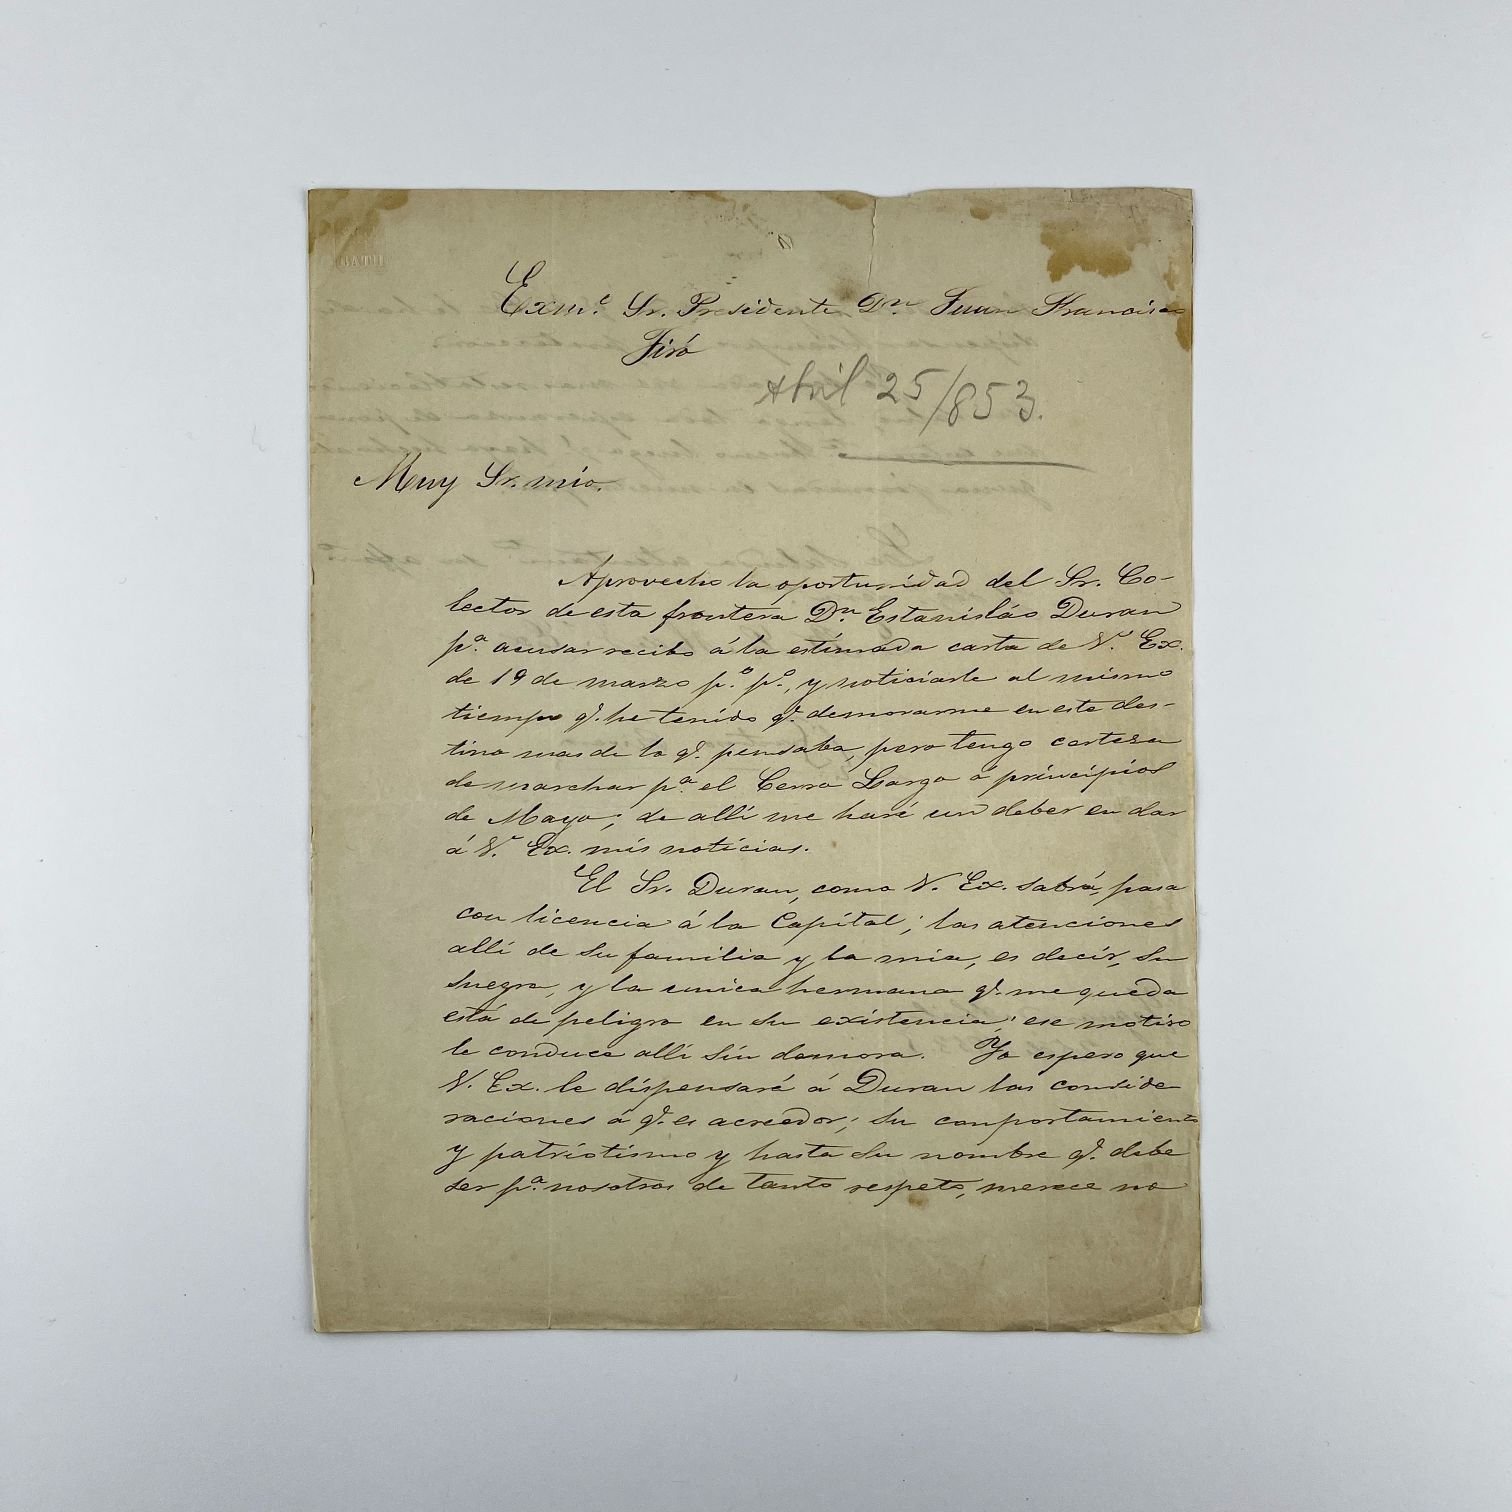 BATH
Exmo. Sr. Presidente Dn. Juan Francisco
Giró
Abril 25/853.
Muy Sr. mio.
Aprovecho la oportunidad del Sr. Co-
lector de esta frontera Dn. Estanisláo Duran
pa. acusar recibo á la estimada carta de V. Ex.
de 19 de marzo po. po., y noticiarle al mismo
tiempo q. he tenido q. demorarme en este des-
tino mas de lo q. pensaba, pero tengo certeza
de marchar pa. el Cerro Largo á principios
de Mayo; de allí me haré un deber en dar
á V. Ex. mis noticias.
El Sr. Duran, como V. Ex. sabrá, pasa
con licencia á la Capital; las atenciones
allí de su familia y la mia, es decir, su
suegra, y la unica hermana q. me queda
está de peligro en su existencia; ese motivo
le conduce allí sin demora. Yo espero que
V. Ex. le dispensará á Duran las conside-
raciones á q. es acreedor; su comportamiento
y patriotismo y hasta su nombre q. debe
ser pa. nosotros de tanto respeto, merece no